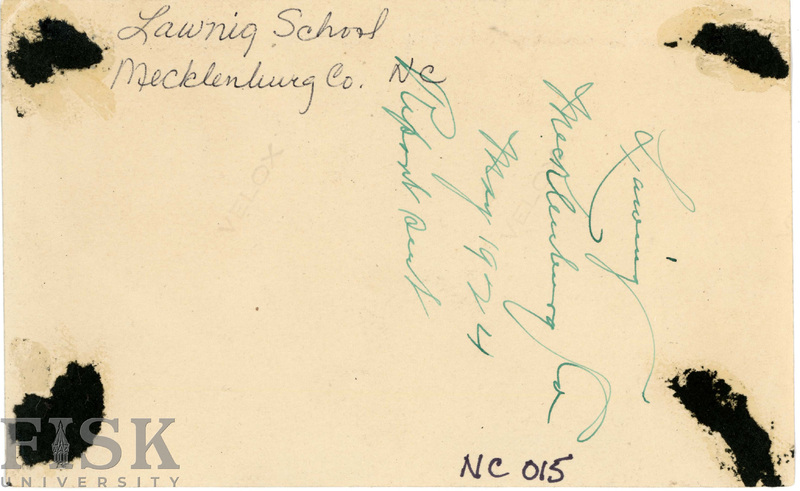 Lawnig School
Mecklenburg Co. NC
Lawing
Mecklenburg Co
May 1924
Report Sent
VELOX
VELOX
NC 015
FISK
UNIVERSITY